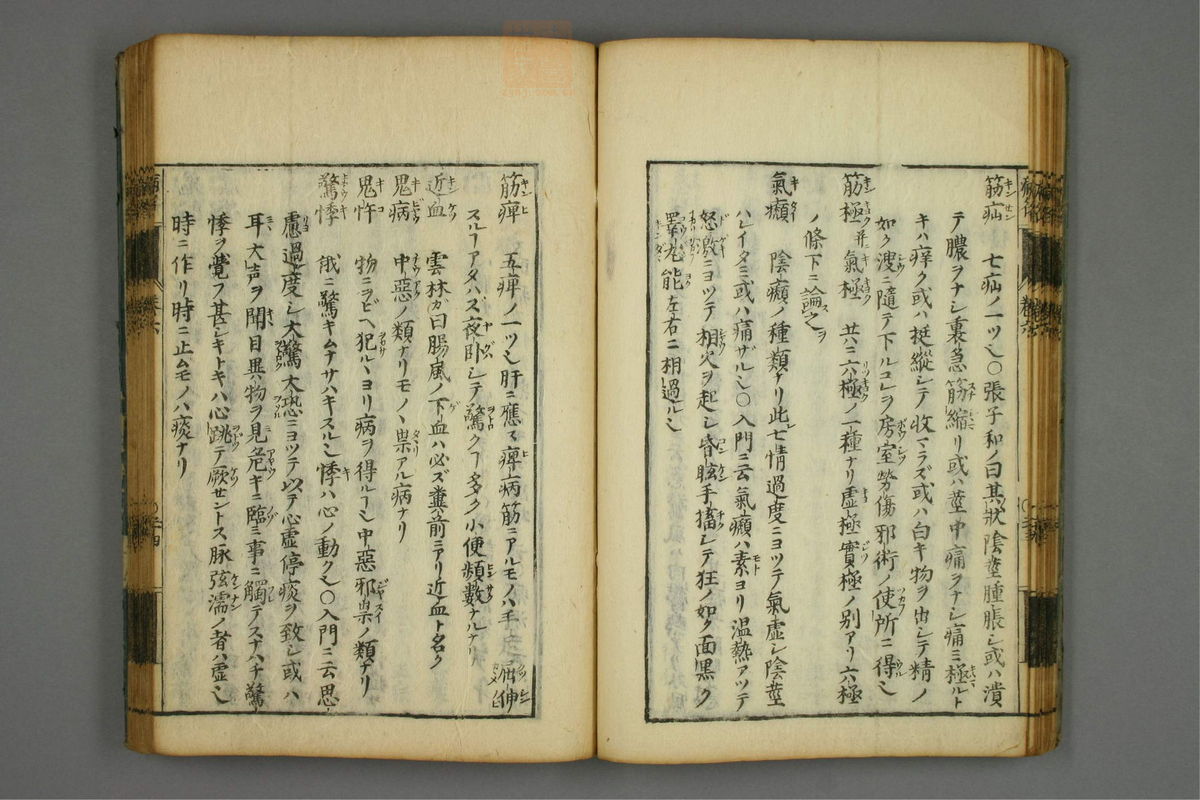 筋疝 七疝ノ一ツ也○張子和ノ曰其狀陰莖腫脹シ或ハ潰
テ膿ヲナシ裏急筋縮リ或ハ莖中痛ヲナシ痛ミ極ルト
キハ痒ク或ハ挺縱シテ收マラズ或ハ白キ物ヲ出シテ精ノ
如ク溲ニ隨テ下ルコレヲ房室勞傷邪術ノ使所ニ得也
筋極并氣極 共ニ六極ノ一種ナリ虚極實極ノ別アリ六極
ノ條下ニ論之
氣㿗 陰㿗ノ種類ナリ此七情過度ニヨツテ氣虚シ陰莖
ハレイタミ或ハ痛ザル也○入門ニ云氣㿗ハ素ヨリ温熱アツテ
怒激ニヨツテ相火ヲ起シ昏眩手搐シテ狂ノ如ク面黒ク
睪丸能左右ニ相過ル也
筋痺 五痺ノ一ツ也肝ニ應ス痺病筋ニアルモノハ手足屈伸
スルヿアタハス夜卧シテ驚クヿ多ク小便頻數ナルナリ
近血 雲林カ曰腸風ノ下血ハ必ズ糞前ニアリ近血ト名ク
鬼病 中惡ノ類ナリモノヽ祟アル病ナリ
鬼忤 物ニヲビヘ犯ルヽヨリ病ヲ得ルヿ也中惡邪祟ノ類ナリ
驚悸 俄ニ驚キムナサハキスル也悸ハ心ノ動ク也○入門ニ云思
慮過度シ大驚大恐ニヨツテ以テ心虚停痰ヲ致シ或ハ
耳大声ヲ聞目異物ヲ見危キニ臨ミ事ニ觸テスナハチ驚
悸ヲ覺フ甚シキトキハ心跳テ厥せントス脉弦濡ノ者ハ虚也
時ニ作リ時ニ止ムモノハ痰ナリ